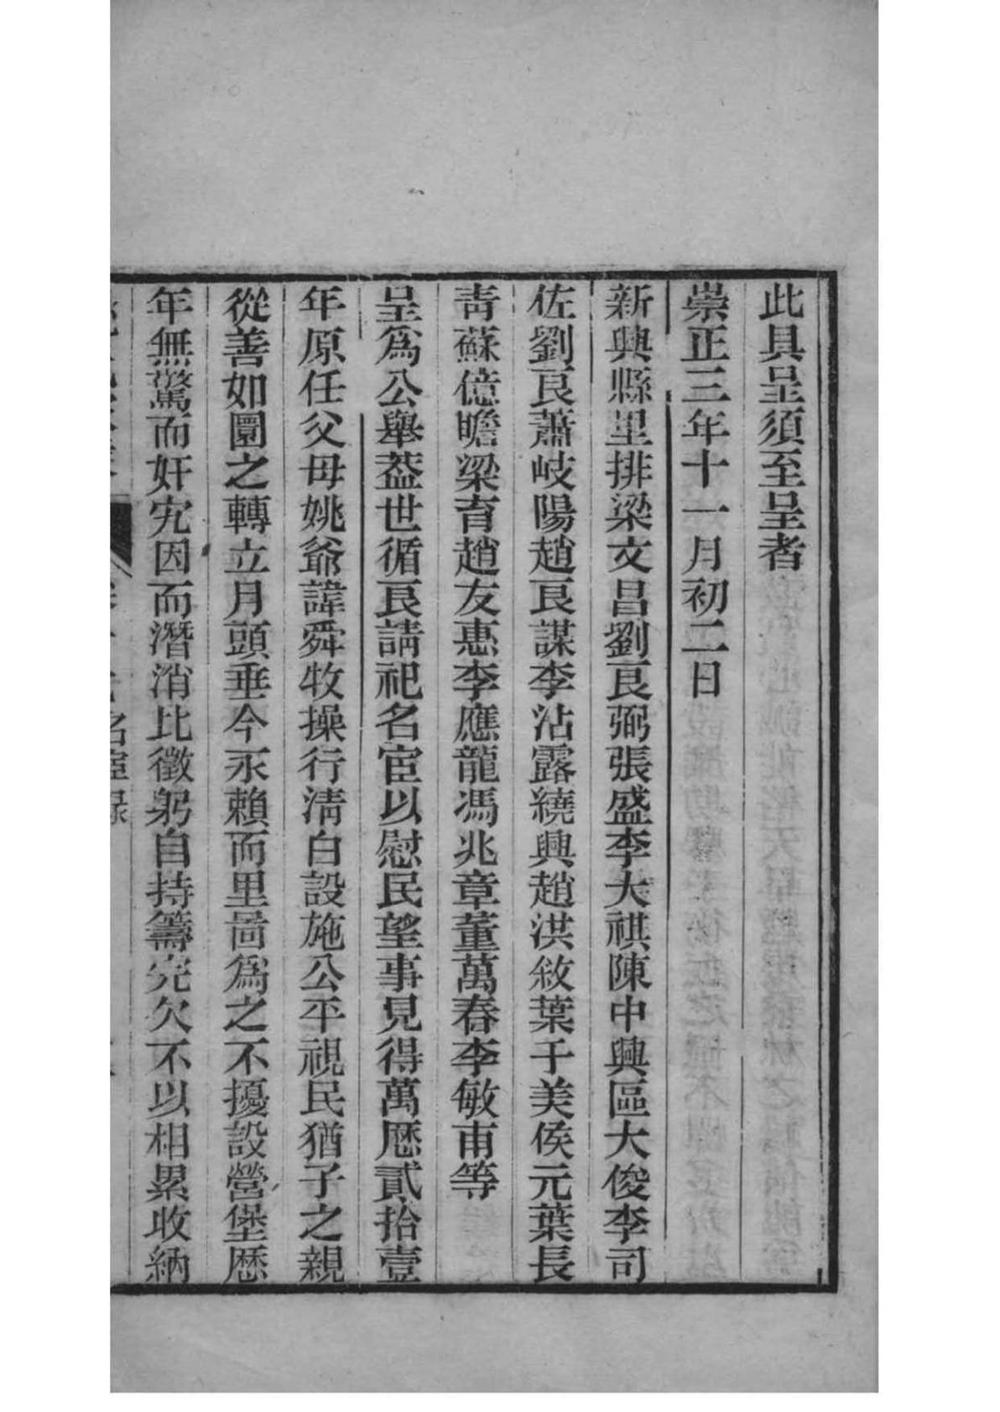 此具呈須至呈者
崇正三年十一月初二日
新興縣里排梁文昌劉良弼張盛李大祺陳中興區大俊李司
佐劉良蕭岐陽趙良謀李沾露繞興趙洪敘葉千美侯元葉長
青蘇億瞻梁育趙友惠李應龍馮兆章董萬春李敏甫等
呈爲公舉葢世循良請祀名宦以慰民望事見得萬厯貳拾壹
年原任父母姚爺諱舜牧操行清白設施公平視民猶子之親
從善如圜之轉立月頭垂今永賴而里啚爲之不擾設營堡厯
年無驚而奸宄因而潛消比徵躬自持籌完欠不以相累收納
名宦录